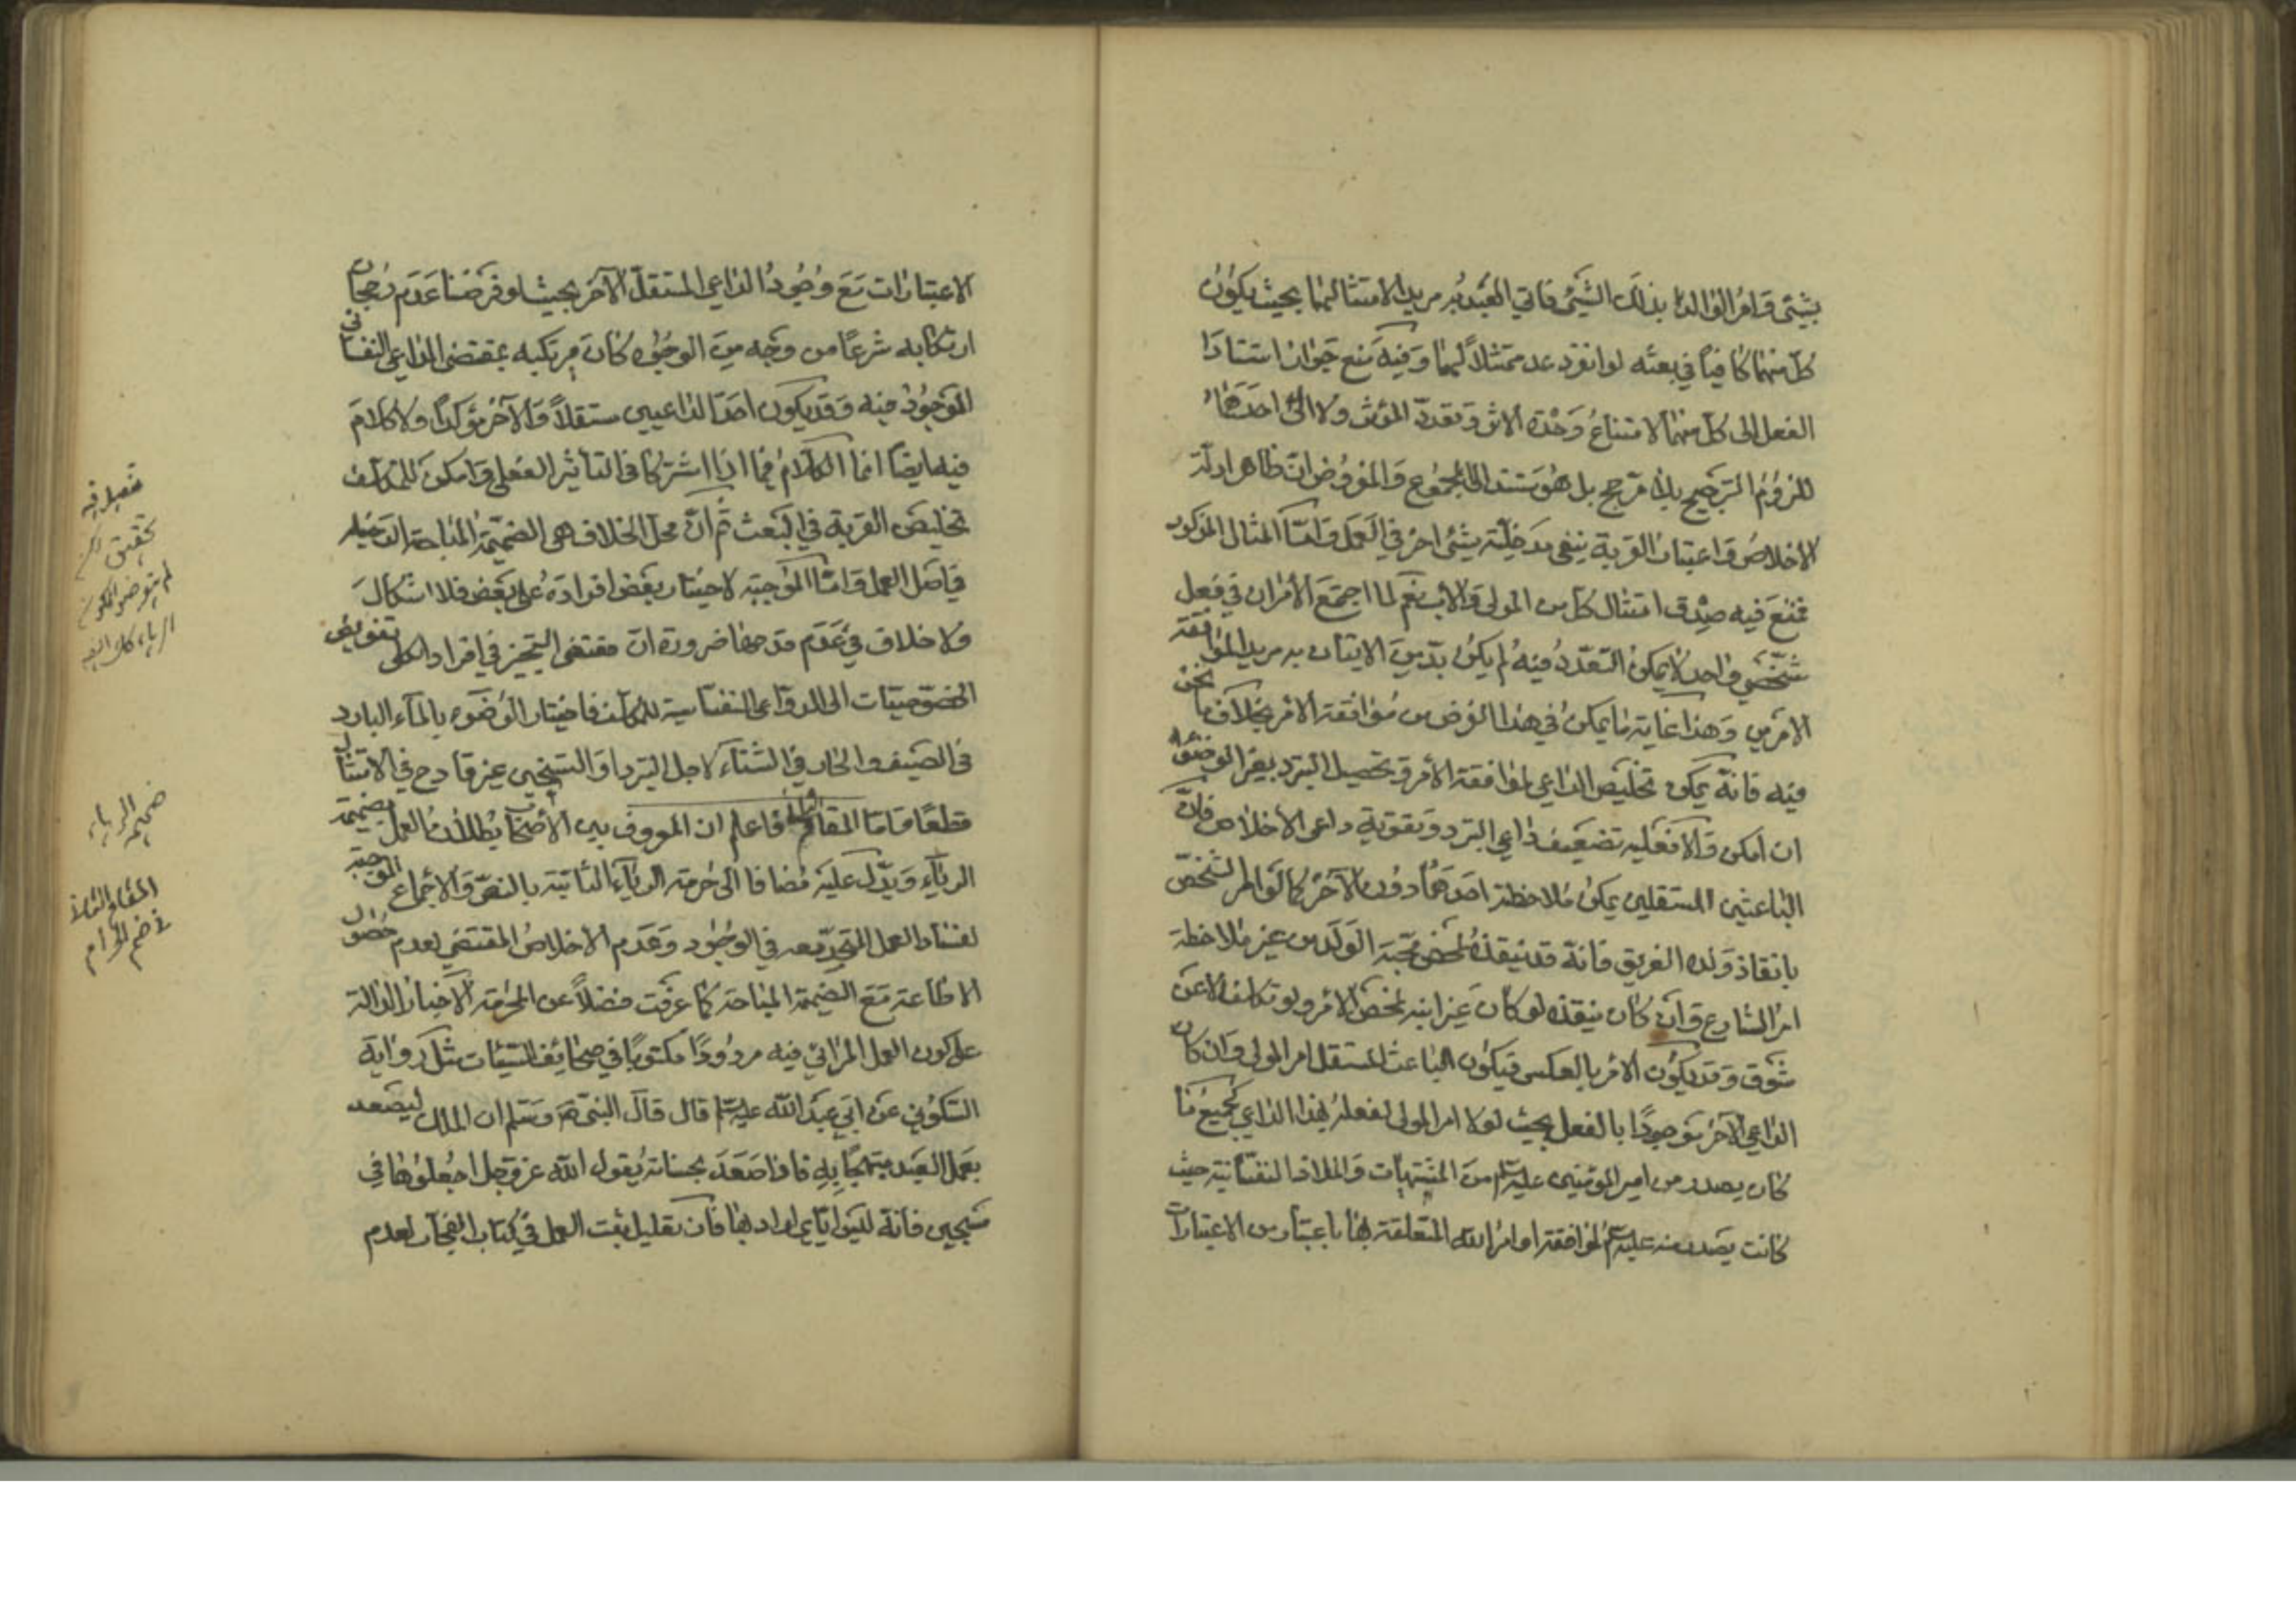 بشيئ وامر الوالد بذلك الشيئ فاتي العبد به مريدا لامتثالهما بحيث يكون
كل منهما كافيا في بعثه لو انفرد عد ممتثلا لهما وفيه منع جواز استناد
الفعل الى كل منهما لامتناع وحدة الاثر وتعدد المؤثر ولا الى احدهما
للزوم الترجيح بلا مرجح بل هو مستند الى المجموع والمفروض ان ظاهر ادلة
الاخلاص واعتبار القربة ينفي مدخلية شيئ اخر في العمل واما المثال المذكور
فمنع فيه صدق امتثال كل من المولى والاب نعم لما اجتمع الأمران في فعل
شخصي واحد لا يمكن التعدد فيه لم يكن بد من الاتيان به مريدا لموافقة
الامرين وهذا غاية ما يمكن في هذا الفرض من موافقة الامر بخلاف ما نحن
فيه فانه يمكن تخليص الداعي لموافقة الأمر وتحصيل التبرد بغير الوضوء
ان امكن والا فعليه تضعيف داعي التبرد وتقوية داعي الاخلاص فان
الباعثين المستقلين يمكن ملاحظة احدهما دون الآخر كما لو امر الشخص
بانقاذ ولده الغريق فانه قد ينقذه لمحض محبة الولد من غير ملاحظة
امر الشارع وان كان ينقذه لو كان غير ابنه لمحض الأمر ولو تكلفا لا عن
شوق وقد يكون الامر بالعكس فيكون الباعث المستقل امر المولى وان كان
الداعي الآخر موجودا بالفعل بحيث لولا امر المولى لفعله لهذا الداعي كجميع ما
كان يصدر من امير المؤمنين عليه السلم من المشتهيات والملاذ النفسانية حيث
كانت يصدر منه عليه السلم لموافقة اوامر الله المتعلقة بها باعتبار من الاعتبارات
الاعتبارات مع وجود الداعي المستقل الآخر بحيث لو فرضنا عدم رجحان
ارتكابه شرعا من وجه من الوجوه كان مرتكبه بمقتضى الداعي النفساني
الموجود فيه وقد يكون احد الداعيين مستقلا والآخر مؤكدا ولا كلام
فيه ايضا انما الكلام فيما اذا اشتركا في التأثير الفعلي وامكن للمكلف
تخليص القربة في البعث ثم ان محل الخلاف هي الضميمة المباحة الدخيله
في اصل العمل واما الموجبة لاختيار بعض افراده على بعض فلا اشكال
ولا خلاف في عدم قدحها ضرورة ان مقتضى التخيير في افراد الكلي تفويض
الخصوصيات الى الدواعي النفسانية للمكلف فاختيار الوضوء بالمآء البارد
في الصيف والحار في الشتآء لاجل التبرد او التسخين غير قادح في الامتثال
قطعا واما المقام الثالث فاعلم ان المعروف بين الأصحاب بطلان العمل بضميمة
الرياء ويدل عليه مضافا الى حرمة الرياء الثابتة بالنص والاجماع الموجبة
لفساد العمل المتحد معه في الوجود وعدم الاخلاص المقتضي لعدم حصول
الاطاعة مع الضميمة المباحة كما عرفت فضلا عن المحرمة الاخبار الدالة
على كون العمل المرائي فيه مردودا مكتوبا في صحائف السيئات مثل رواية
السكوني عن ابي عبد الله عليه السلم قال قال النبي ص وسلم ان الملك ليصعد
بعمل العبد مبتهجا به فاذا صعد بحسناته يقول الله عز وجل اجعلوها في
سجين فانه ليس اياي اراد بها فان تعليل ثبت العمل في كتاب الفجار لعدم
تفصيل فيه
تحقيق لكن
لم يتعرض
الرياء
ضميمة الرياء
المقام الثالث
في ضم الحرام